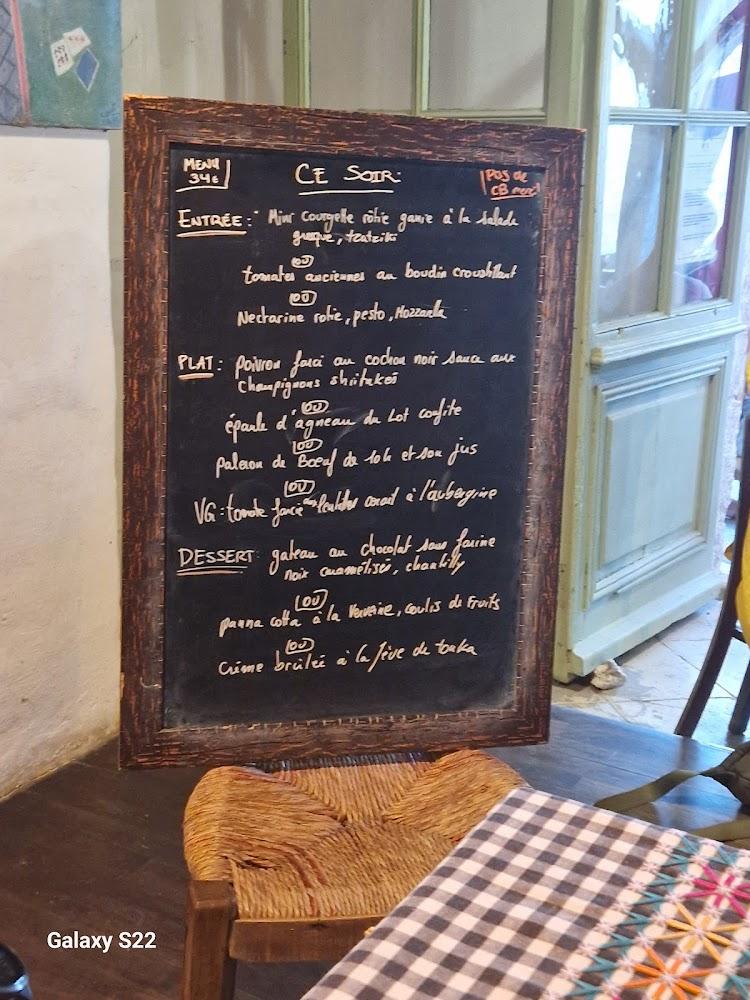 MENU
34€
CE SOIR
Pas de
CB merci
ENTRÉE: Mini Courgette rôtie garnie à la salade
grecque, tzatziki
OU
tomates anciennes au boudin croustillant
OU
Nectarine rotie, pesto, Mozzarella
PLAT: Poivron farci au cochon noir sauce aux
champignons shiitakés
OU
épaule d'agneau du Lot confite
OU
paleron de Bœuf de et son jus
OU
VG: tomate farcie aux lentilles corail à l'aubergine
DESSERT: gateau au chocolat sans farine
noix caramélisés, chantilly
OU
panna cotta à la Verveine, coulis de Fruits
OU
Crème brûlée à la fève de tonka
Galaxy S22